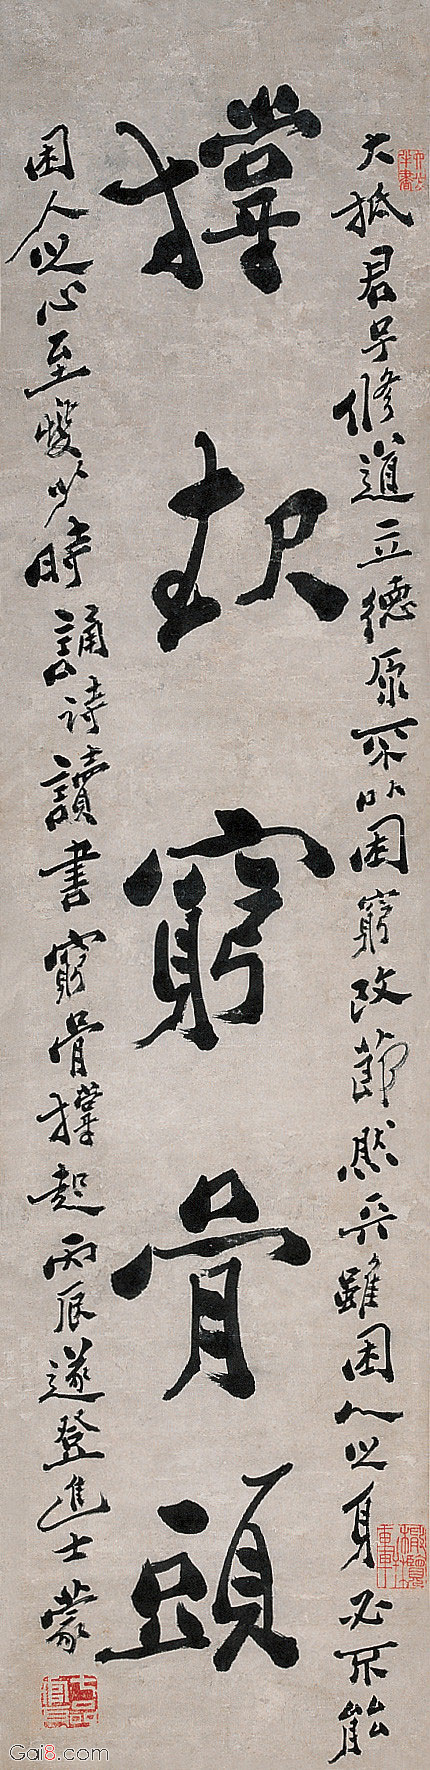 大抵君子修道立德原不以困窮改節然雖困人之身必不能
撑起窮骨頭
困人之心至燮少時誦詩讀書窮骨撑起丙辰遂登進士
Gai8.com